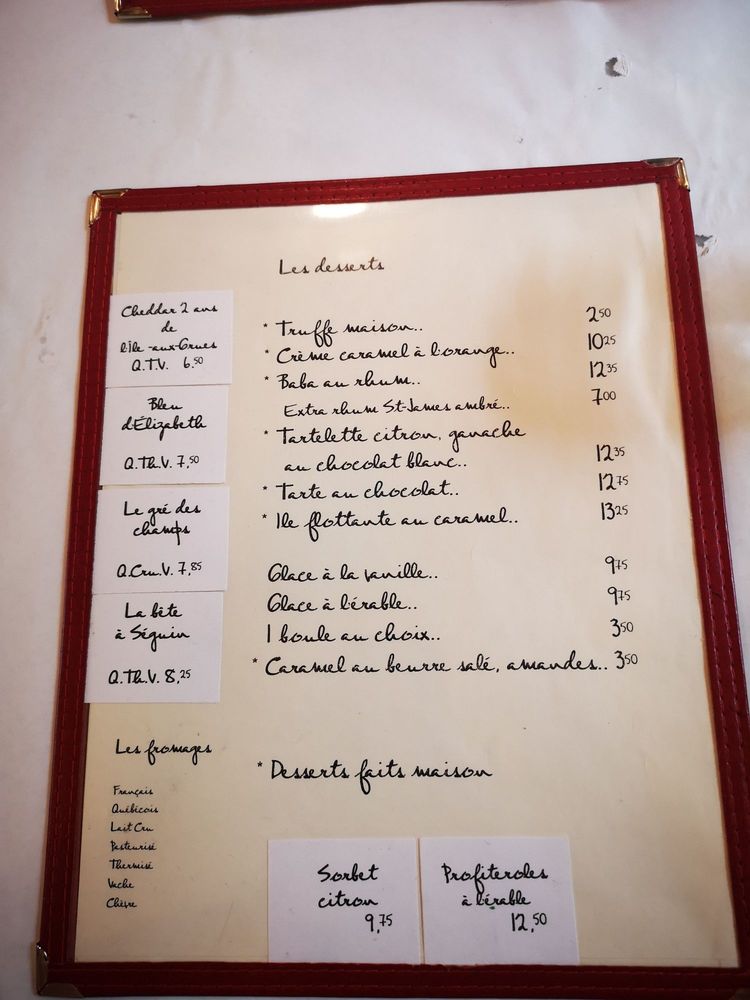 Les desserts
* Truffe maison.. 2 50
* Crème caramel à l'orange.. 10 25
* Baba au rhum.. 12 35
Extra rhum St-James ambré.. 7 00
* Tartelette citron, ganache
au chocolat blanc.. 12 35
* Tarte au chocolat.. 12 75
* Ile flottante au caramel.. 13 25
Glace à la vanille.. 9 75
Glace à l'érable.. 9 75
1 boule au choix.. 3 50
* Caramel au beurre salé, amandes.. 3 50
* Desserts faits maison
Cheddar 2 ans
de
l'Ile-aux-Grues
Q.T.V. 6.50
Bleu
d'Élizabeth
Q.Th.V. 7,50
Le gré des
champs
Q.Cru.V. 7,85
La bête
à Séguin
Q.Th.V. 8,25
Les fromages
Français
Québécois
Lait Cru
Pasteurisé
Thermisé
Vache
Chèvre
Sorbet
citron
9,75
Profiteroles
à l'érable
12,50